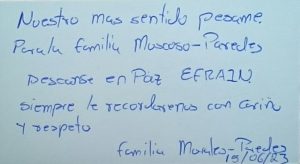 Nuestro mas sentido pesame
Para la familia Moscoso-Paredes
Descanse en Paz EFRAIN.
siempre le recordaremos con cariño
y respeto
familia Morales-Paredes
15/06/23